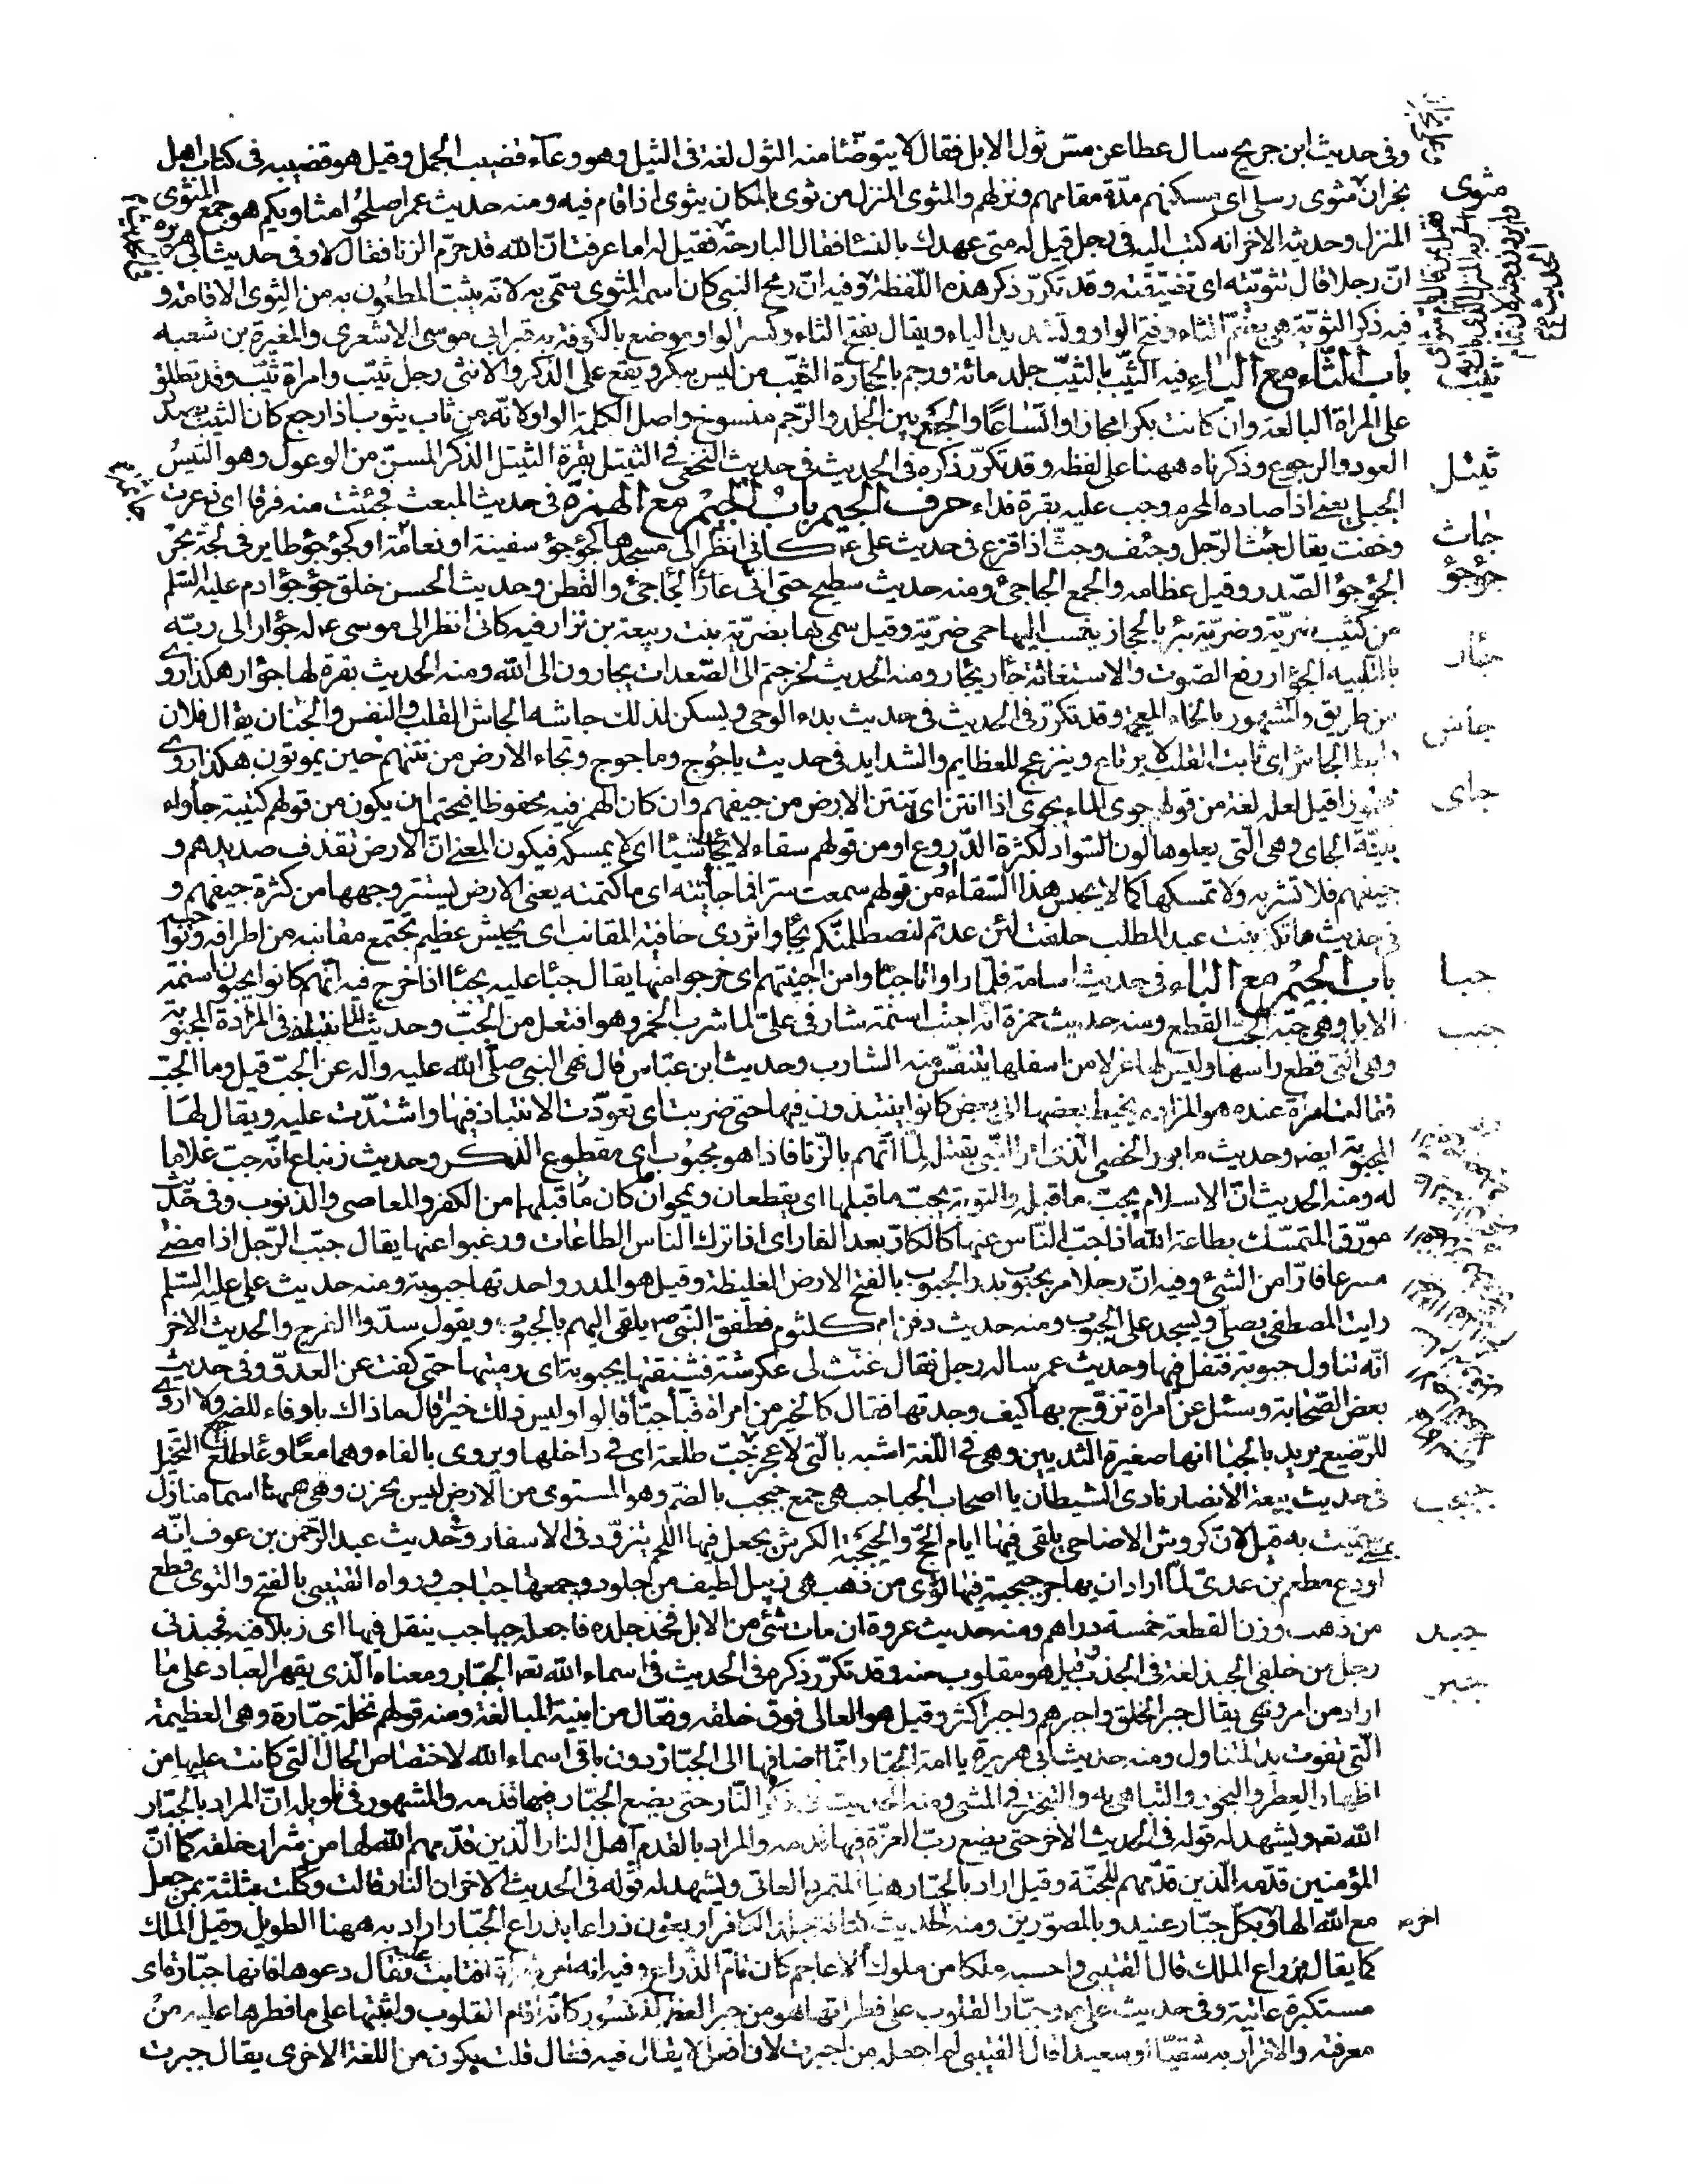 وفى حديث ابن جريج سال عطا عن مسّ ثول الابل فقال لا يتوضّا منه الثول لغة فى الثيل وهو وعآء قضيب الجمل وقيل هو قضيبه فى كتاب اهل
مثوى
نجران مثوى رسلى اى مسكنهم مدّة مقامهم ونزلهم والمثوى المنزل من ثوى بالمكان يثوى اذا قام فيه ومنه حديث عمر اصلحوا مثاويكم هو جمع المثوى
المنزل وحديثه الاخر انه كتب اليه فى رجل قيل له متى عهدك بالنسا فقال البارحة فقيل له اما عرفت انّ الله قد حرّم الزنا فقال لا وفى حديث ابى هريره
انّ رجلا قال تثوّيته اى تضيّفته وقد تكرّر ذكر هذه اللّفظة وفيه انّ رمح النبى كان اسمه المثوى سمّى به لانّه يثبت المطعون به من الثوى الاقامة و
فيه ذكر الثويّة هى بضمّ الثاء وفتح الواو وتشديد الياء ويقال بفتح الثاء وكسر الواو موضع بالكوفة به قبر ابى موسى الاشعرى والمغيرة بن شعبه
ثيب
باب الثّاء مع الياء فيه الثيّب بالثيّب جلد مائة ورجم بالحجارة الثيّب من ليس ببكر ويقع على الذكر والانثى رجل ثيّب وامراة ثيّب وقد تطلق
على المراة البالغة وان كانت بكرا مجازا واتّساعًا والجمع بين الجلد والرّجم منسوخ واصل الكلمة الواو لانّه من ثاب يثوب اذا رجع كان الثيب بصدد
ثيتل
العود والرجوع وذكرناه ههنا على لفظه وقد تكرّر ذكره فى الحديث فى حديث النخعى فى الثيتل بقرة الثيتل الذكر المسنّ من الوعول وهو التيس
الجبلى يعنى اذا صاده المحرم وجب عليه بقرة فداء حرف الجيم باب الجيم مع الهمزة فى حديث المبعث فجئثت منه فرقا اى ذعرت
جاث
وخفت يقال جئث الرّجل وجئف وجثّ اذا فزع فى حديث على ع كانى انظر الى مسجدها كجؤجؤ سفينة او نعامة او كجؤجؤ طاير فى لجة بحر
جؤجؤ
الجؤجؤ الصّدر وقيل عظامه والجمع الجاجئ ومنه حديث سطيح حتى اتى عار الجاجئ والقطن وحديث الحسن خلق جؤجؤ ادم عليه السّلم
من كثيب ضريّة وضريّة بئر بالحجاز ينسب اليها حمى ضريّة وقيل سمى بها بضريّة بنت ربيعة بن نزار فيه كانى انظر الى موسى ع له جؤار الى ربّه
جئار
بالتلبيه الجؤار رفع الصّوت والاستغاثة جأر يجأر ومنه الحديث لخرجتم الى الصّعدات تجارون الى الله ومنه الحديث بقرة لها جؤار هكذا روى
جأش
من طريق والمشهور بالخاء المعجمة وقد تكرّر فى الحديث فى حديث بدء الوحى ويسكن لذلك جاشه الجاش القلب والنفس والجنان يقال فلان
رابط الجاش اى ثابت القلب لا يرتاع وينزعج للعظايم والشدايد فى حديث ياجوج وماجوج وتجاء الارض من نتنهم حين يموتون هكذا روى
جاى
مهموزا قيل لعله لغة من قولهم جوى الماء يجوى اذا انتن اى تنتن الارض من جيفهم وان كان الهمز فيه محفوظا فيحتمل ان يكون من قولهم كتيبة جأواء
بيّنة الجاى وهى الّتى يعلوها لون السّواد لكثرة الدّروع او من قولهم سقاء لا يجأى شيئا اى لا يمسكه فيكون المعنى انّ الارض تقذف صديدهم و
جيفهم فلا تشربه ولا تمسكها كما لا يحبس هذا السّقاء او من قولهم سمعت سرّا فما جأيته اى ما كتمته يعنى الارض يستتر وجهها من كثرة جيفهم و
فى حديث عاتكة بنت عبد المطلب حلفت لئن عدتم لنصطلمنّكم بجأواء تردى حافتيه المقانب اى بجيش عظيم تجتمع مقانبه من اطرافه ونواحيه
جبا
باب الجيم مع الباء فى حديث اسامة فلمّا راوانا جبئوا من اخبيتهم اى خرجوا منها يقال جبئا عليه يجبئا اذا خرج فيه انّهم كانوا يجبّون اسنمة
جبب
الابل وهى حيّة الجبّ القطع ومنه حديث حمزة انّه اجتبّ اسنمة شارفى علىّ لما شرب الخمر وهو افتعل من الجبّ وحديث الانتباذ فى المزادة المجبوبة
وهى التى قطع راسها وليس لها عزلاء من اسفلها يتنفّس منه الشارب وحديث ابن عبّاس قال نهى النبى صلّى الله عليه واله عن الجبّ قيل وما الجبّ
فقالت امراة عنده هو المزاده يخيط بعضها الى بعض كانوا ينتبذون فيها حتى ضربت اى تعوّدت الانتباذ فيها واشتدّت عليه ويقال لها
المجبوبة ايضا وحديث مابور الخصى الّذى امر النّبى بقتله لمّا اتّهم بالزّنا فاذا هو مجبوب اى مقطوع الذكر وحديث زنباع انّه جبّ غلاما
له ومنه الحديث انّ الاسلام يجبّ ما قبله والتوبة يجبّ ما قبلها اى يقطعان ويمحوان ما كان قبلهما من الكفر والمعاصى والذنوب وفى حديث
مورّق المتمسّك بطاعة الله اذا جبّب النّاس عنها كالكارّ بعد الفار اى اذا ترك الناس الطاعات ورغبوا عنها يقال جبّب الرّجل اذا مضى
مسرعا فارّا من الشئ وفيه انّ رجلا مر بجبوب بدر الجبوب بالفتح الارض الغليظة وقيل هو المدر واحدتها جبوبة ومنه حديث على عليه السّلم
رايت المصطفى يصلى ويسجد على الجبوب ومنه حديث دفن ام كلثوم فطفق النّبى ص يلقى اليهم بالجبوب ويقول سدّوا الفرج والحديث الاخر
انّه تناول جبوبة فتفل فيها وحديث عمر ساله رجل فقال عنّت لى عكرشة فشنقتها بجبوبة اى رميتها حتى كفت عن العدوّ وفى حديث
بعض الصّحابة وسئل عن امراة تزوّج بها كيف وجدتها فقال كالخير من امراة قبّا جبّا قالوا اوليس ذلك خيرا قال ما ذاك بادفاء للضجيع ولا اروى
للرّضيع يريد بالجبّا انها صغيرة الثديين وهى فى اللّغة اشبه بالّتى لا عجز لها
فى حديث بيعة الانصار نادى الشيطان يا اصحاب الجباجب هى جمع جبجب بالضمّ وهو المستوى من الارض ليس بحزن وهى ههنا اسما منازل
جبجب
بمنى سمّيت به قيل لانّ كروش الاضاحى يلقى فيها ايام الحجّ والجبجبة الكرش يجعل فيها اللحم يتزوّد فى الاسفار وحديث عبد الرّحمن بن عوف انّه
اودع مطعم بن عدىّ لمّا اراد ان يهاجر جبجبة فيها نوى من ذهب هى زبيل لطيف من جلود وجمعها جباجب ورواه القتيبى بالفتح والنوى قطع
جبذ
من ذهب وزن القطعة خمسة دراهم ومنه حديث عروة ان مات شئ من الابل فخذ جلده فاجعله جباجب ينقل فيها اى زبلا فيه فجبذنى
رجل من خلفى الجبذ لغة فى الجذب قيل هو مقلوب منه وقد تكرّر ذكره فى الحديث فى اسماء الله تعه الجبّار ومعناه الّذى يقهر العباد على ما
جبر
اراد من امر ونهى يقال جبر الخلق واجبرهم واجبر اكثر وقيل هو العالى فوق خلقه وفعّال من ابنية المبالغة ومنه قولهم نخلة جبّارة وهى العظيمة
الّتى تفوت يد المتناول ومنه حديث ابى هريرة يا امة الجبّار انّما اضافها الى الجبّار دون باقى اسماء الله لاختصاص الحال التى كانت عليها من
اظهار العطر والبخور والتباهى به والتبختر فى المشى ومنه الحديث فى ذكر النّار حتى يضع الجبّار فيها قدمه والمشهور فى تاويله انّ المراد بالجبّار
الله تعه ويشهد له قوله فى الحديث الاخر حتى يضع ربّ العزّة فيها قدمه والمراد بالقدم اهل النار الّذين قدّمهم الله لها من شرار خلقه كما انّ
المؤمنين قدمه الّذين قدّمهم للجنّة وقيل اراد بالجبّار هنا المتمرد العاتى ويشهد له قوله فى الحديث الاخر ان النار قالت وكّلت بثلثة بمن جعل
مع الله الها اخر وبكلّ جبّار عنيد وبالمصوّرين ومنه الحديث كثافة جلد الكافر اربعون ذراعا بذراع الجبّار اراد به ههنا الطويل وقيل الملك
كما يقال بذراع الملك قال القتيبى واحسبه ملكا من ملوك الاعاجم كان تامّ الذّراع وفيه انه امر امراة فتابت عليه فقال دعوها فانها جبّارة اى
مستكبرة عاتية وفى حديث على ع وجبّار القلوب على فطراتها هو من جبر العظم المكسور كانّه اقام القلوب واثبتها على ما فطرها عليه من
معرفته والاقرار به شقيّا او سعيدا قال القتيبى لم اجعله من اجبرت لان افعل لا يقال فيه فعّال قلت يكون من اللغة الاخرى يقال جبرت